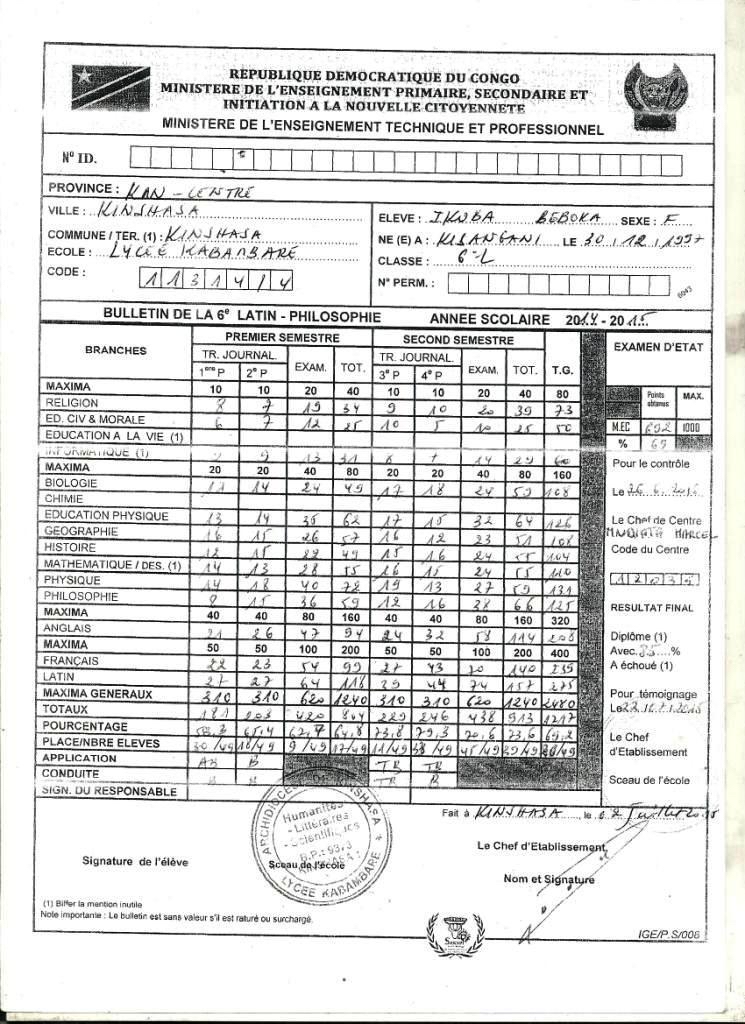 REPUBLIQUE DEMOCRATIQUE DU CONGO
MINISTERE DE L'ENSEIGNEMENT PRIMAIRE, SECONDAIRE ET
INITIATION A LA NOUVELLE CITOYENNETE
MINISTERE DE L'ENSEIGNEMENT TECHNIQUE ET PROFESSIONNEL
N° ID.
PROVINCE : KIN - CENTRE
VILLE : KINSHASA
COMMUNE / TER. (1) : KINSHASA
ECOLE : LYCEE KABAMBARE
CODE : 11314/4
ELEVE : IKUBA BEBOKA SEXE : F
NE (E) A : KISANGANI LE 30 . 12 . 1997
CLASSE : 6e L
N° PERM. :
6043
BULLETIN DE LA 6e LATIN - PHILOSOPHIE ANNEE SCOLAIRE 2014 - 2015
BRANCHES PREMIER SEMESTRE SECOND SEMESTRE T.G. EXAMEN D'ETAT
TR. JOURNAL. EXAM. TOT. TR. JOURNAL. EXAM. TOT.
1ere P 2e P 3e P 4e P
MAXIMA 10 10 20 40 10 10 20 40 80
RELIGION 8 7 19 34 9 10 20 39 73
ED. CIV & MORALE 6 7 12 25 10 5 10 25 50
EDUCATION A LA VIE (1)
INFORMATIQUE (1) 9 13 31 8 7 14 29 60
MAXIMA 20 20 40 80 20 20 40 80 160
BIOLOGIE 14 24 49 17 18 24 59 108
CHIMIE
EDUCATION PHYSIQUE 13 14 35 62 17 15 32 64 126
GEOGRAPHIE 16 15 26 57 16 12 23 51 108
HISTOIRE 12 15 22 49 15 16 24 55 104
MATHEMATIQUE / DES. (1) 14 13 28 55 16 15 24 55 110
PHYSIQUE 14 18 40 72 19 13 27 59 131
PHILOSOPHIE 8 15 36 59 12 16 28 66 125
MAXIMA 40 40 80 160 40 40 80 160 320
ANGLAIS 21 26 47 94 24 32 58 114 208
MAXIMA 50 50 100 200 50 50 100 200 400
FRANÇAIS 22 23 54 99 27 43 70 140 239
LATIN 27 27 64 118 39 44 74 157 275
MAXIMA GENERAUX 310 310 620 1240 310 310 620 1240 2480
TOTAUX 181 203 420 804 229 246 438 913 1717
POURCENTAGE 58,3 65,4 67,7 64,8 73,8 79,3 70,6 73,6 69,2
PLACE/NBRE ELEVES 30/49 18/49 9/49 17/49 11/49 /49 45/49 39/49 /49
APPLICATION AB B TB TB
CONDUITE B B TB B
SIGN. DU RESPONSABLE
Points obtenus MAX.
M.EC 692 1000
% 69
Pour le contrôle
Le 26.6.2015
Le Chef de Centre
MARCEL
Code du Centre
RESULTAT FINAL
Diplôme (1)
Avec % 
A échoué (1)
Pour témoignage
Le
Le Chef
d'Etablissement
Sceau de l'école
Fait à KINSHASA, le 02 Juillet 2015
Le Chef d'Etablissement,
Nom et Signature
Signature de l'élève
Sceau de l'école
ARCHIDIOCESE DE KINSHASA
Humanités
- Littéraires
- Scientifiques
B.P.: 9373
KINSHASA 1
LYCEE KABAMBARE
(1) Biffer la mention inutile
Note importante : Le bulletin est sans valeur s'il est raturé ou surchargé.
IGE/P.S/006